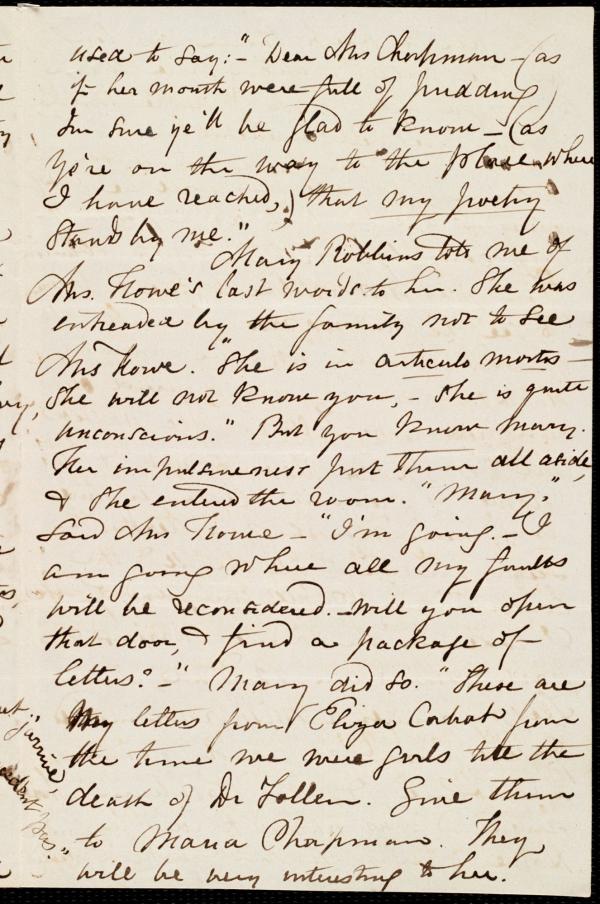 used to say:- "Dear Mrs Chapman - (as
if her mouth were full of pudding)
I'm sure ye'll be glad to know - (as
Yo're on the way to the place where
I have reached,) that my poetry
stands by me."
Mary Robbins told me of
Mrs. Howe's last words to her. She was
entreated by the family not to see
Mrs Howe. "She is in articulo mortis -
She will not know you, - she is quite
unconscious." But you know Mary.
Her impulsiveness put them all aside,
& she entered the room. "Mary,"
said Mrs Howe - "I'm going. - I
am going where all my faults
will be reconsidered. - Will you open
that door, & find a package of
letters? -" Mary did so. "These are
My letters from Eliza Cabot from
the time we were girls till the
death of Dr Follen. Give them
to Maria Chapman. They
will be very interesting to her.